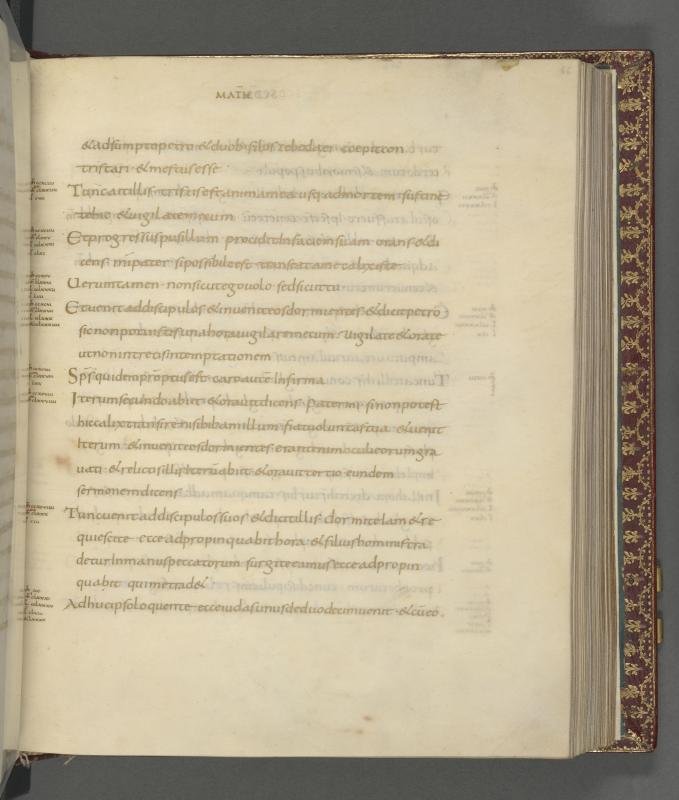 MATH
et adsumpto petro et duob; filiis zebedaei coepit con
tristari et mestus esse
Tunc ait illis tristis est anima mea usq; ad mortem sustine
te hic et uigilate mecum
Et progressus pusillum procidit in faciem suam orans et di
cens mi pater si possibile est transeat a me calix iste
Uerumtamen non sicut ego uolo sed sicut tu
Et uenit ad discipulos et inuenit eos dormientes et dicit petro
sic non potuistis una hora uigilare mecum uigilate et orate
ut non intretis in temptationem
Sps quidem promptus est caro aute infirma
Iterum secundo abiit et orauit dicens pater mi si non potest
hic calix transire nisi bibam illum fiat uoluntas tua et uenit
iterum et inuenit eos dormientes erant enim oculi eorum gra
uati et relictis illis iterum abiit et orauit tertio eundem
sermonem dicens
Tunc uenit ad discipulos suos et dicit illis dormite iam et re
quiescite ecce adpropinquabit hora et filius hominis tra
detur in manus peccatorum surgite eamus ecce adpropin
quabit qui me tradet
Adhuc ipso loquente ecce iudas unus de duodecim uenit et cu eo